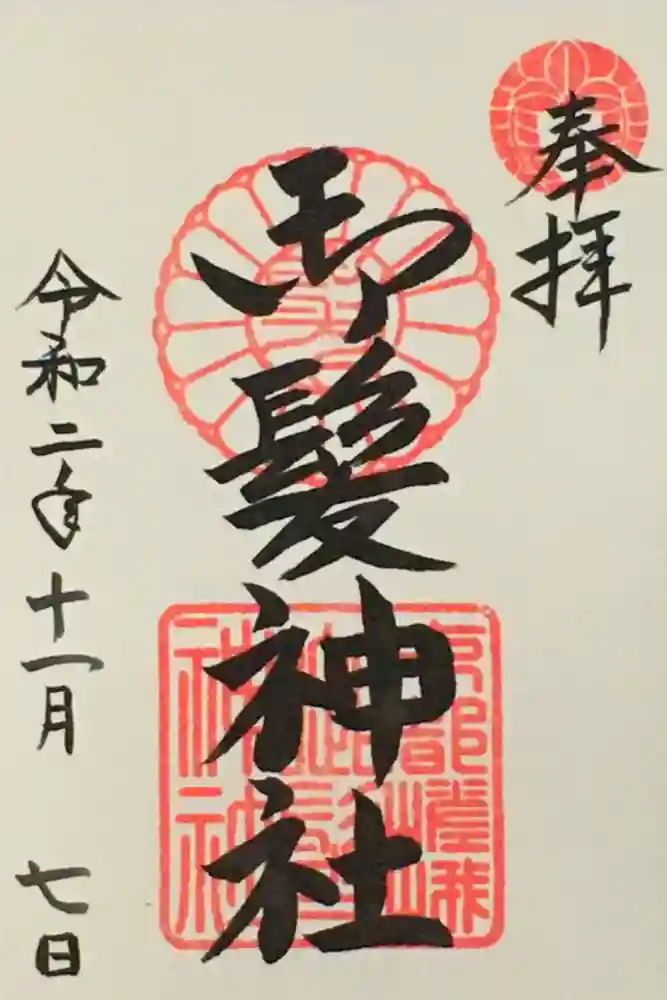 奉拝
御髪神社
令和二年十一月 七日